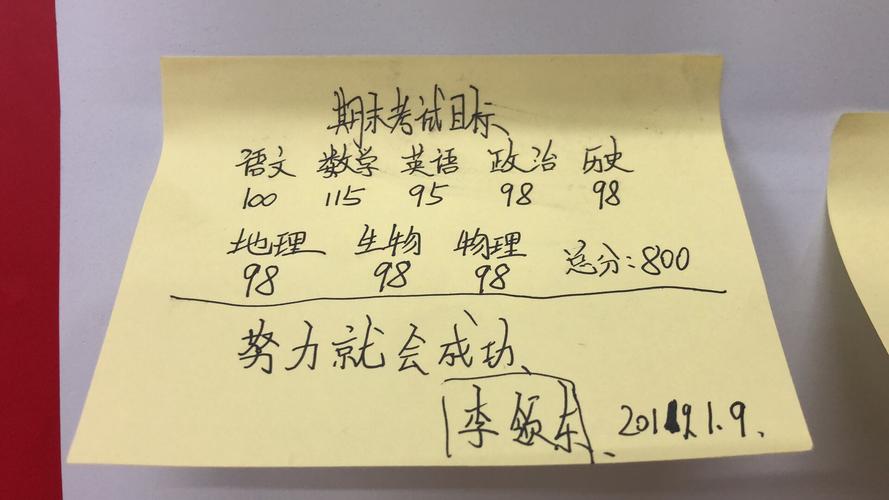 期末考试目标
语文 数学 英语 政治 历史
100 115 95 98 98
地理 生物 物理 总分:800
98 98 98
努力就会成功、
李颂东、 2019.1.9.